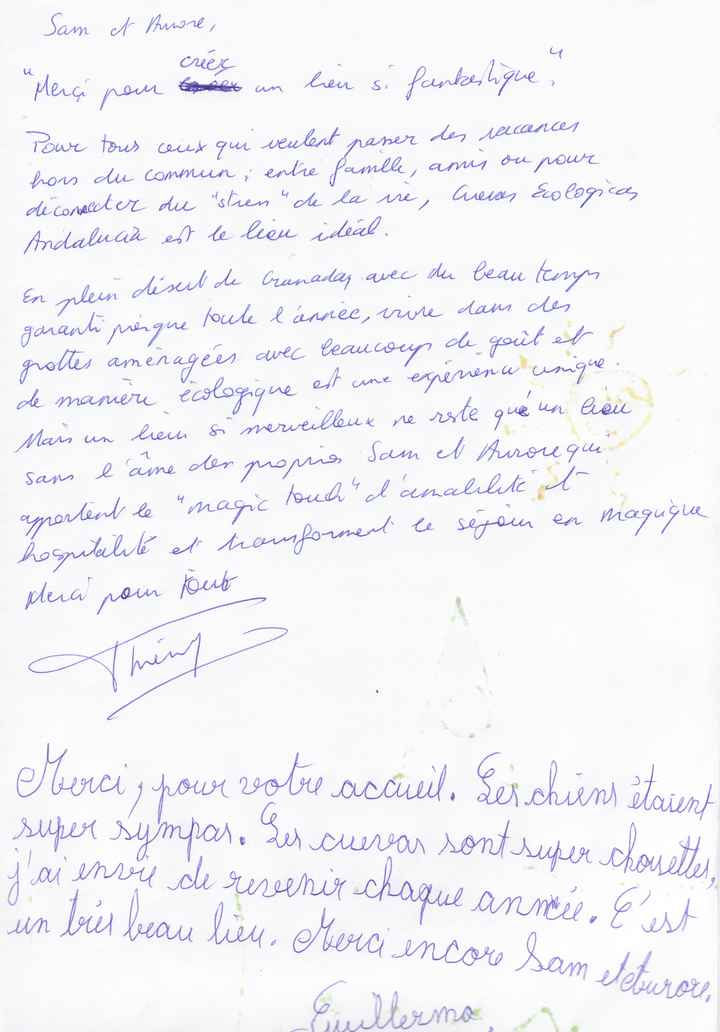 Sam et Aurore,
créer
"Merçi pour un lieu si fantastique".
Pour tous ceux qui veulent passer des vacances
hors du commun; entre famille, amis ou pour
déconnecter du "stress" de la vie, Cuevas Ecologicas
Andalucia est le lieu idéal.
En plein désert de Granada, avec du beau temps
garanti présque toute l'année, vivre dans des
grottes aménagées avec beaucoup de goût et
de manière écologique est une expérience unique.
Mais un lieu si merveilleux ne reste qu'un lieu
sans l'âme des proprios Sam et Aurore qui
apportent le "magic touch" d'amabilité et
hospitalité et transforment le séjour en magique
Merci pour tout
Thierry
Merci, pour votre accueil. Les chiens étaient
super sympas. Les cuevas sont super chouettes,
j'ai envie de revenir chaque année. C'est
un très beau lieu. Merci encore Sam et Aurore.
Guillermo.